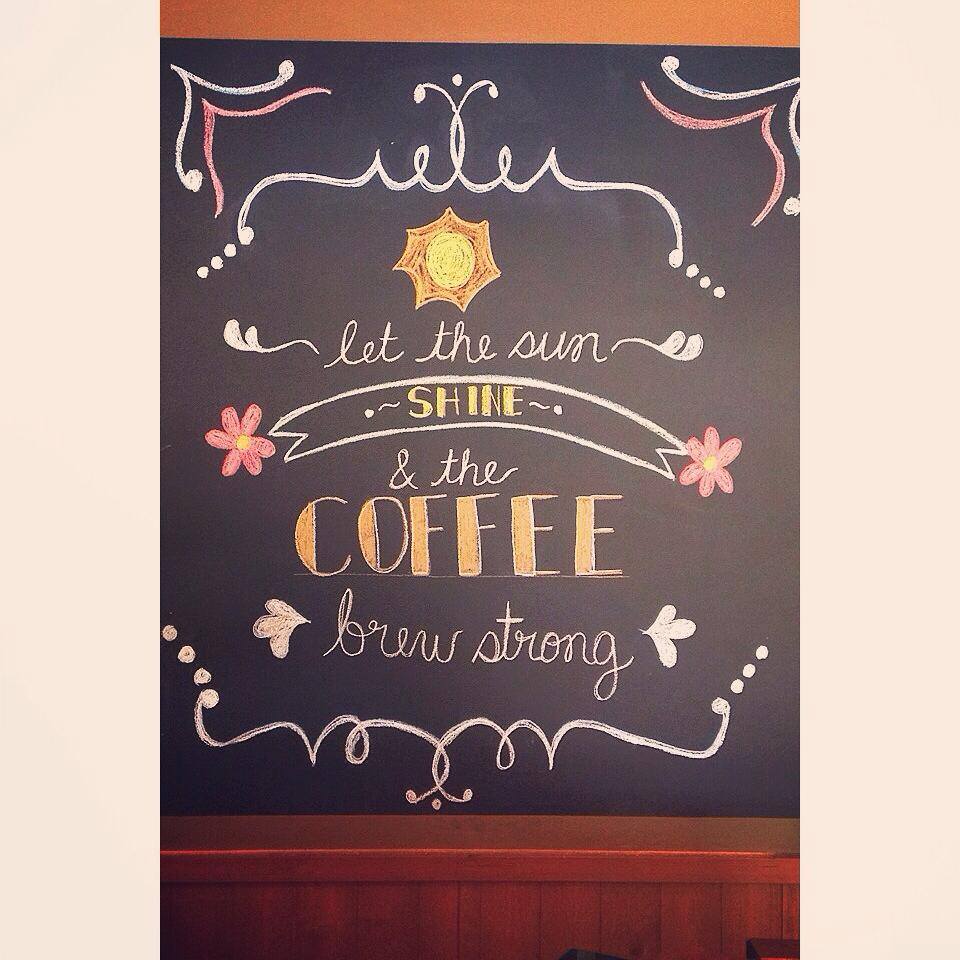 let the sun
~ SHINE ~
& the
COFFEE
brew strong